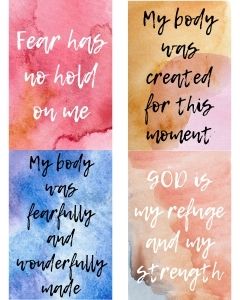 Fear has
no hold
on me
My body
was
created
for this
moment
My body
was
fearfully
and
wonderfully
made
GOD is
my refuge
and my
strength